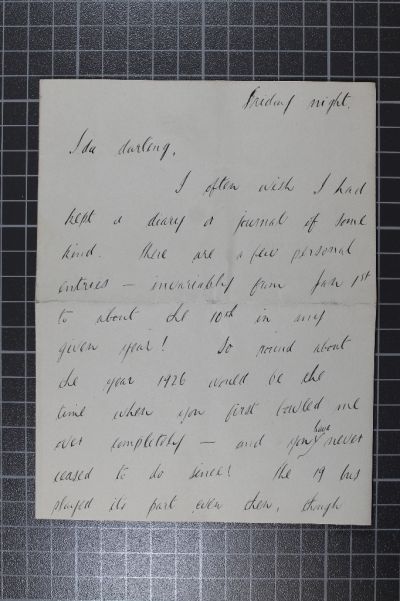 Friday night.
Ida darling,
I often wish I had
kept a diary or journal of some
kind. There are a few personal
entries — invariably from Jan 1st
to about the 10th in any
given year! So round about
the year 1926 would be the
time when you first bowled me
over completely — and you have never
ceased to do since! The 19 bus
played its part even then, though